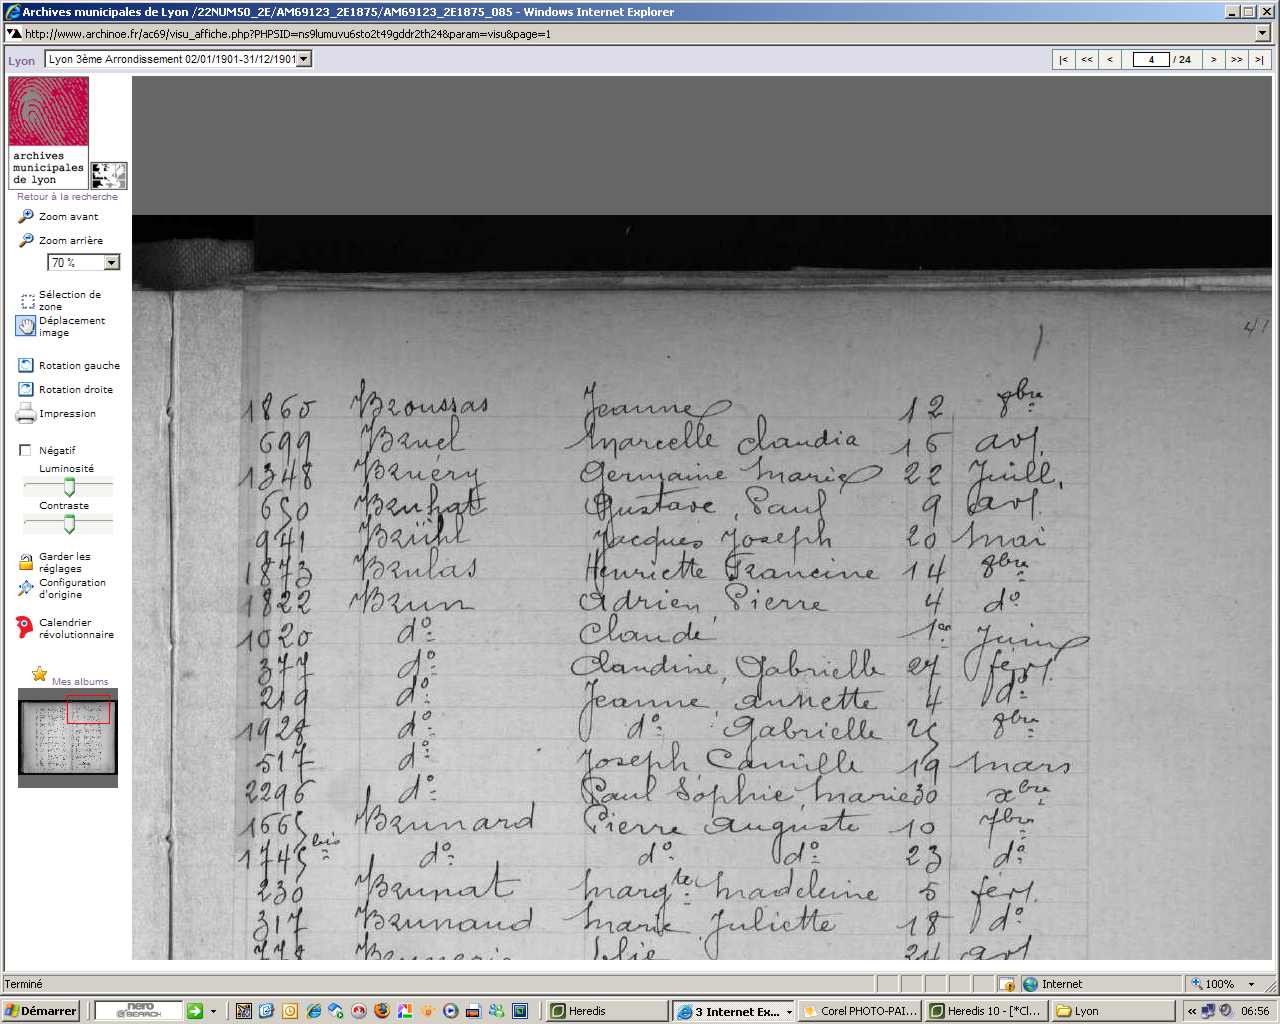 Archives municipales de Lyon /22NUM50_2E/AM69123_2E1875/AM69123_2E1875_085 - Windows Internet Explorer
http://www.archinoe.fr/ac69/visu_affiche.php?PHPSID=ns9lumuvu6sto2t49gddr2th24&param=visu&page=1
Lyon Lyon 3ème Arrondissement 02/01/1901-31/12/1901 |< << < 4 / 24 > >> >|
archives
municipales
de Lyon
Retour à la recherche
Zoom avant
Zoom arrière
70 %
Sélection de
zone
Déplacement
image
Rotation gauche
Rotation droite
Impression
Négatif
Luminosité
Contraste
Garder les
réglages
Configuration
d'origine
Calendrier
révolutionnaire
Mes albums
41
1860 Broussas Jeanne 12 9bre
699 Bruel Marcelle Claudia 16 avl.
1348 Bruéry Germaine Marie 22 Juill.
650 Bruhat Gustave, Paul 9 avl.
941 Brühl Jacques Joseph 20 mai
1873 Brulas Henriette Francine 14 9bre
1822 Brun Adrien Pierre 4 do
1020 do Claude 1er Juin
377 do Claudine, Gabrielle 27 févr.
219 do Jeanne, Annette 4 do
1928 do do Gabrielle 25 9bre
517 do Joseph Camille 19 mars
2296 do Paul Sophie, Marie 30 xbre
1665 Brunard Pierre Auguste 10 7bre
1745 bis do do do 23 do
230 Brunat Margte Madeleine 5 févr.
317 Brunaud Marie Juliette 18 do
778 Elie 24 avl
Terminé Internet 100%
Démarrer nero SEARCH Heredis 3 Internet Ex... Corel PHOTO-PAI... Heredis 10 - [*Cl... Lyon 06:56